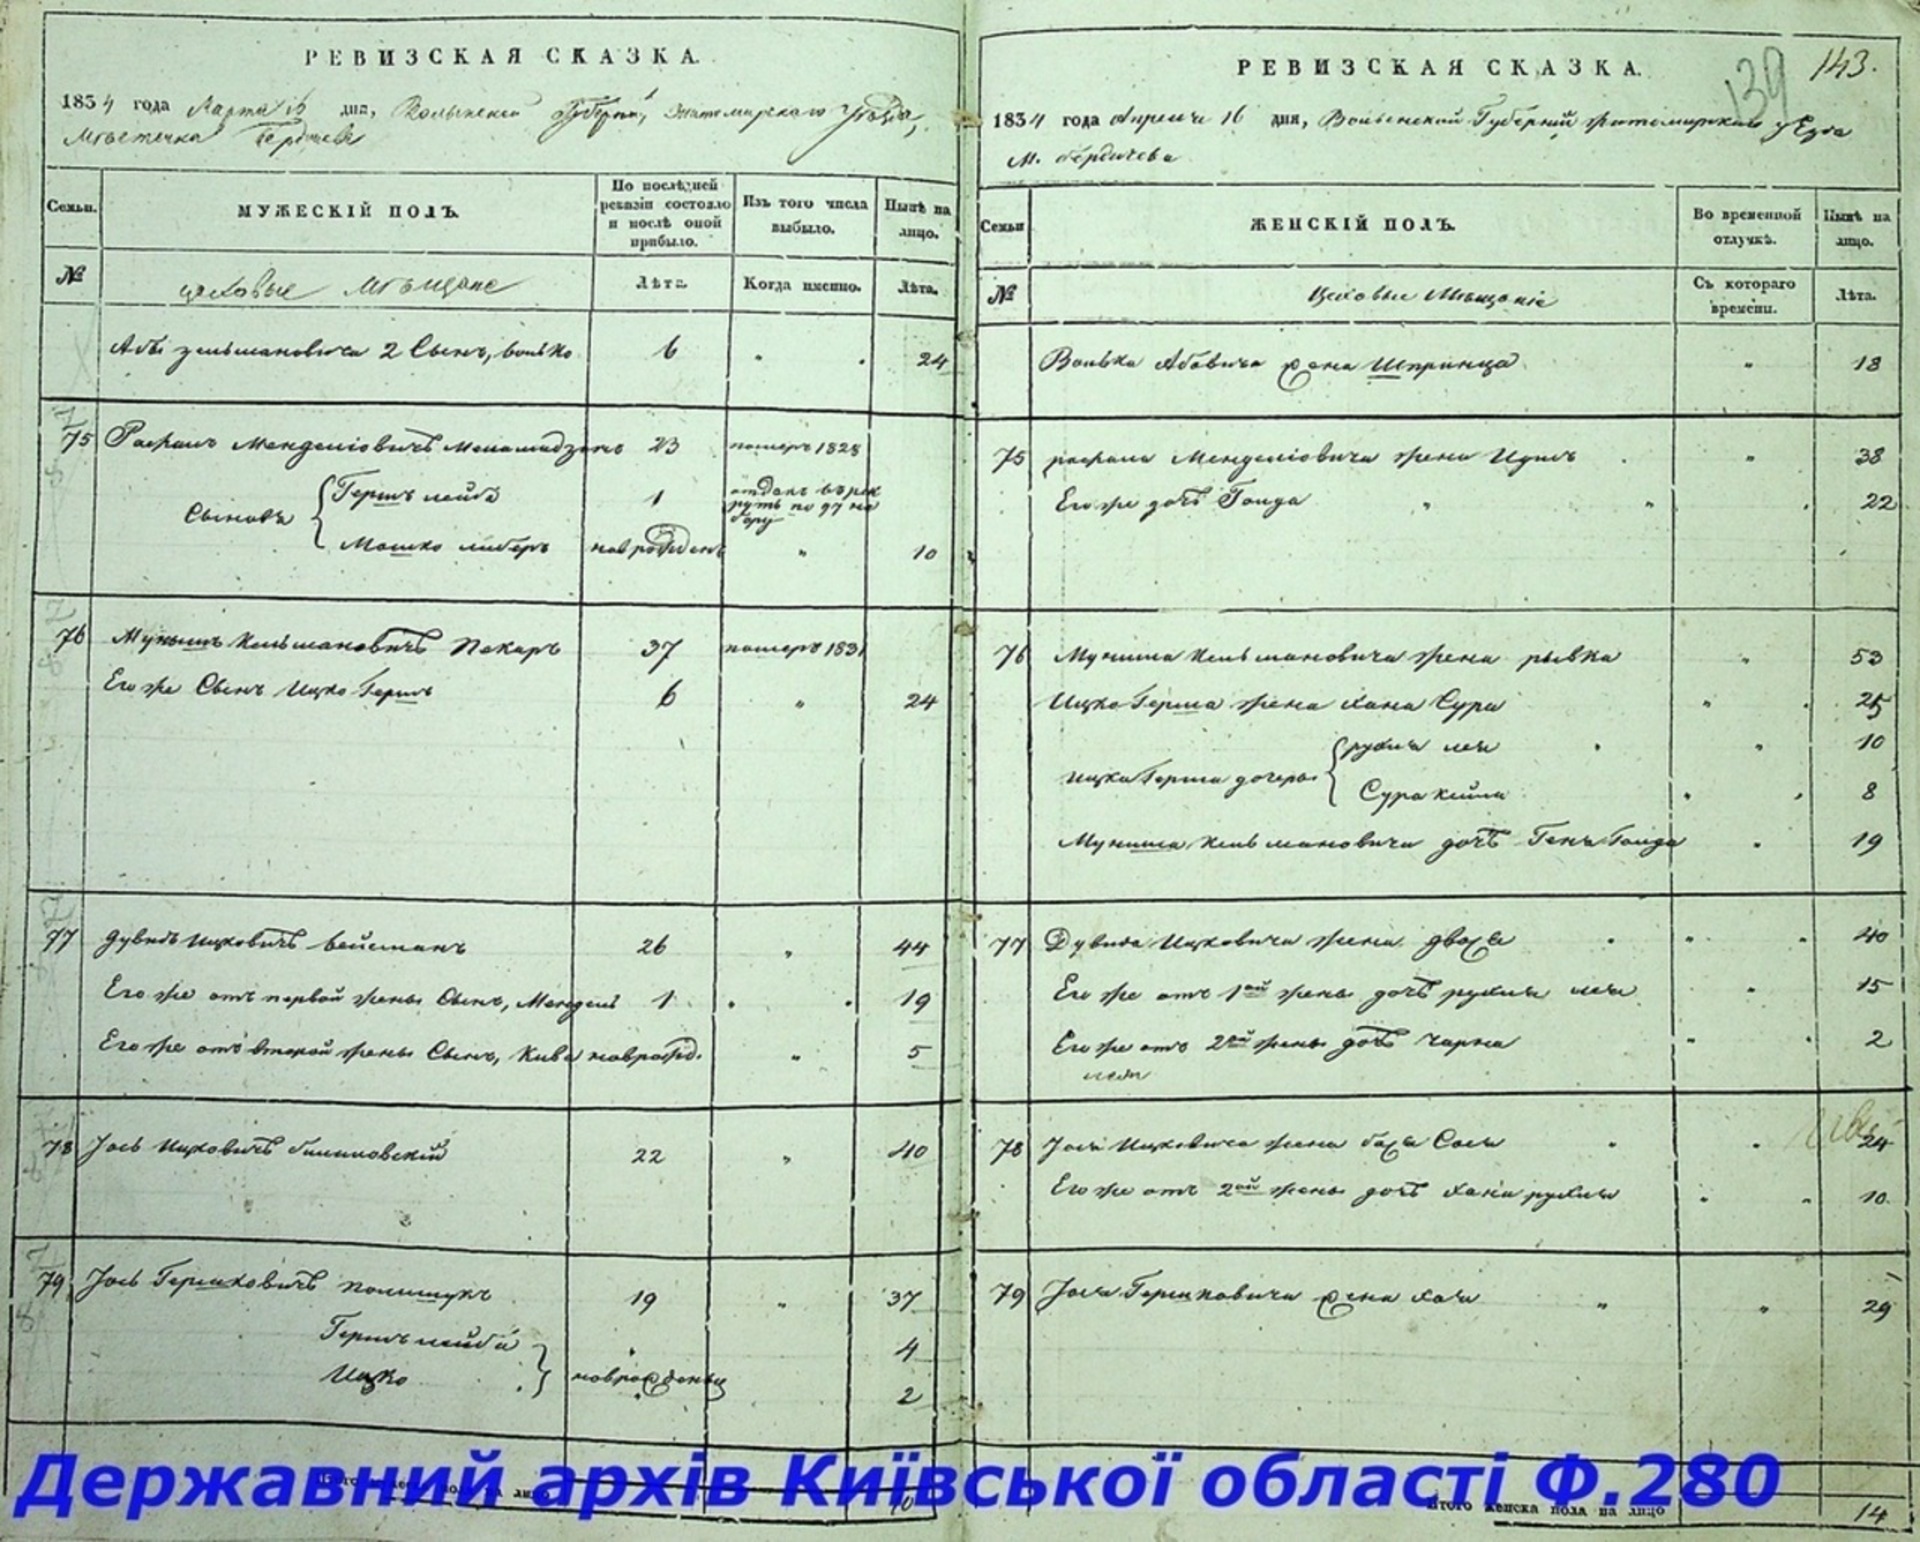 РЕВИЗСКАЯ СКАЗКА.
1834 года Марта 16 дня, Волынской Губерніи, Житомирскаго Уезда,
Мѣстечка Бердичева
Семьи.
МУЖЕСКІЙ ПОЛЪ.
По послѣдней ревизіи состояло и послѣ оной прибыло.
Изъ того числа выбыло.
Нынѣ на лицо.
№
цеховые Мѣщане
Лѣта.
Когда именно.
Лѣта.
Абы Зельмановича 2 Сынъ, Волько 6 " . 24
75 Рафаилъ Менделіовичъ 23 померъ 1828
Сыновья { Гершъ лейба 1 отданъ въ рек
рутъ по 97 на
бору
Мошко либеръ новрожденъ " 10
76 Мунышъ Кельмановичъ Пекаръ 37 померъ 1831
Его же Сынъ Ицко Гершъ 6 " 24
77 Дувидъ Ицковичъ Вейсманъ 26 " 44
Его же отъ первой жены Сынъ, Мендель 1 . . 19
Его же отъ второй жены Сынъ, Кива новрожд. " 5
78 Іось Ицковичъ 22 " 40
79 Іось Гершковичъ Полищукъ 19 " 37
Гершъ лейба 4
Ицко } новрожденны 2
Итого 10
РЕВИЗСКАЯ СКАЗКА.
139 143.
1834 года Апреля 16 дня, Волынской Губерніи Житомирскаго уезда
М. бердичева
Семьи
ЖЕНСКІЙ ПОЛЪ.
Во временной отлучкѣ.
Нынѣ на лицо.
№
Цеховые Мѣщаніе
Съ котораго времени.
Лѣта.
Волька Абовича жена Шпринца " 18
75 рафаила Менделіовича жена Идисъ . " 38
Его же дочъ Голда " " . 22
76 Муниша Кельмановича жена рывка " 53
Ицко Герша жена хана Сура " . 25
Ицка Герша дочеры { рухля лея . " 10
Сура Кейла " , 8
Муниша Кельмановича дочъ Голда " 19
77 Дувида Ицковича жена двося . " . 40
Его же отъ 1ой жены дочъ рухля лея " 15
Его же отъ 2ой жены дочъ чарна " . 2
лея
78 Іося Ицковича жена Сося " . 24
Его же отъ 2ой жены дочъ хана рухля " " 10
79 Іося Гершковича жена хая " " 29
Итого женска пола на лицо 14
Державний архів Київської області Ф.280